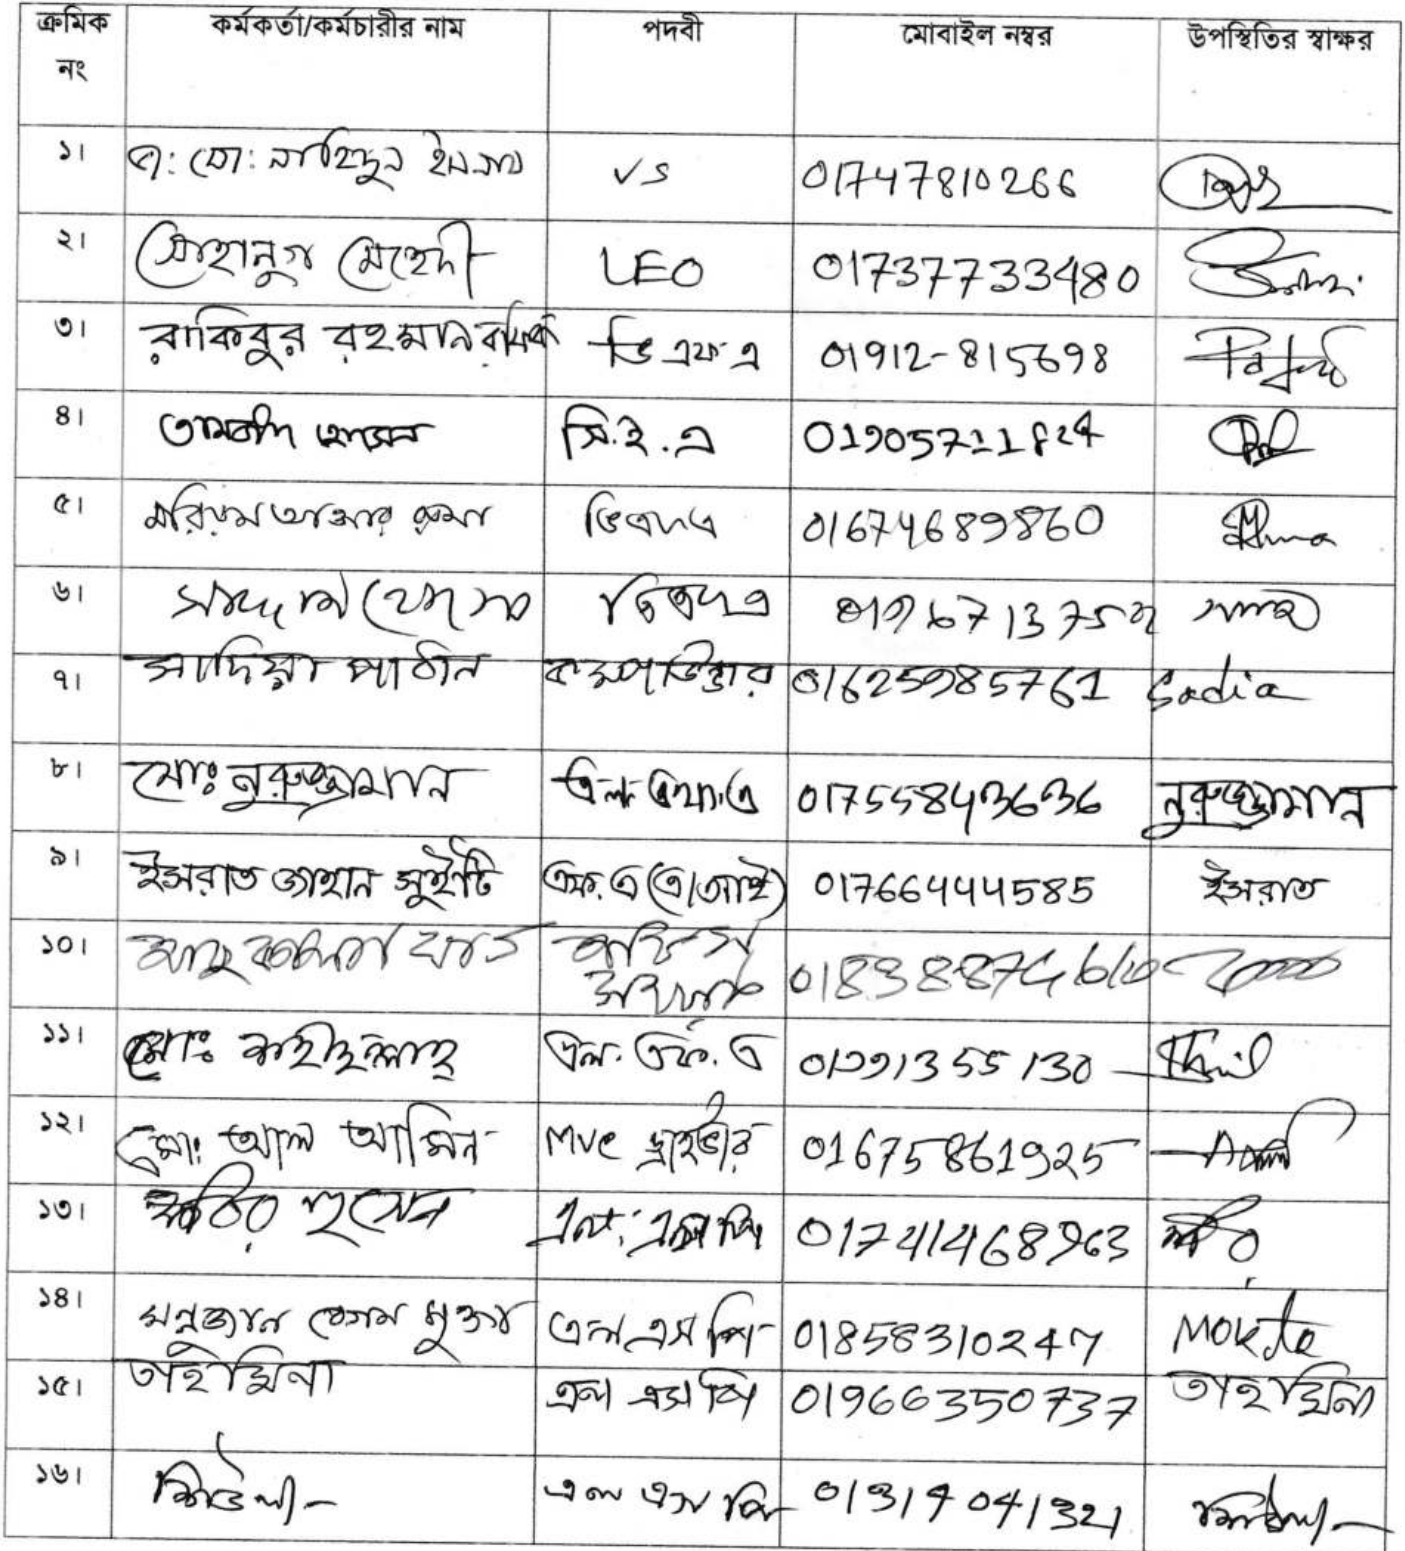 ক্রমিক নং কর্মকর্তা/কর্মচারীর নাম পদবী মোবাইল নম্বর উপস্থিতির স্বাক্ষর
১। ডা: মো: নাহিদুল ইসলাম VS 01747810266
২। মেহেদী LEO 01737733480
৩। রাকিবুর রহমান ভি এফ এ 01912-815698
৪। তানভীর হোসেন সি.ই.এ 01905711824
৫। মরিয়ম আক্তার রুমা ভিএফএ 01674689860
৬। সাদ্দাম হোসেন ভিএফএ
৭। সাদিয়া পাঠান কম্পাউন্ডার 01625985761 Sadia
৮। মোঃ নুরুজ্জামান এল.এফ.এ 01755843636 নুরুজ্জামান
৯। ইসরাত জাহান সুইটি এফ.এ (এ/আই) 01766444585 ইসরাত
১০। অফিস সহায়ক
১১। মোঃ এল.এফ.এ
১২। মোঃ আল আমিন MVC ড্রাইভার 01675861925
১৩। কবির হুসেন এল. এস পি 01741468963
১৪। মন্নুজান বেগম মুক্তা এল এস পি 01858310247 Mokta
১৫। তাহমিনা এল এস পি 01966350737 তাহমিনা
১৬। শিউলী এল এস পি 01314041321 শিউলী